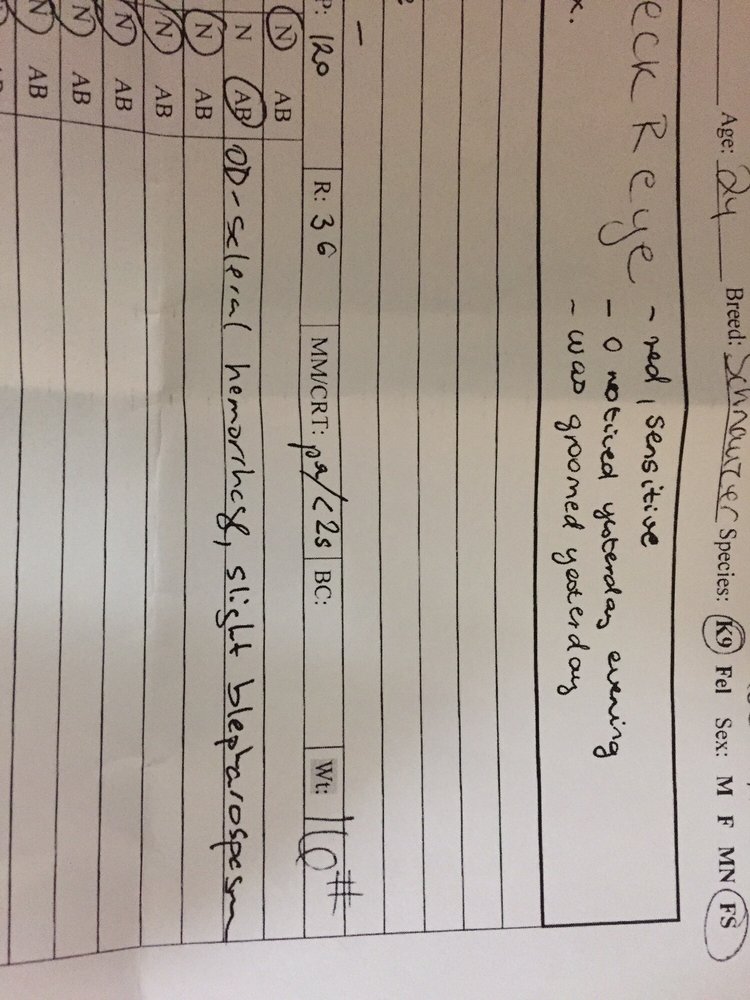 Age: 2y Breed: Schnauzer Species: K9 Fel Sex: M F MN FS
eck R eye - red, sensitive
- O noticed yesterday evening
x. - was groomed yesterday
P: 120 R: 36 MM/CRT: pn/<2s BC: Wt: 16#
N AB
N AB OD-scleral hemorrhage, slight blepharospasm
N AB
N AB
N AB
N AB
N AB